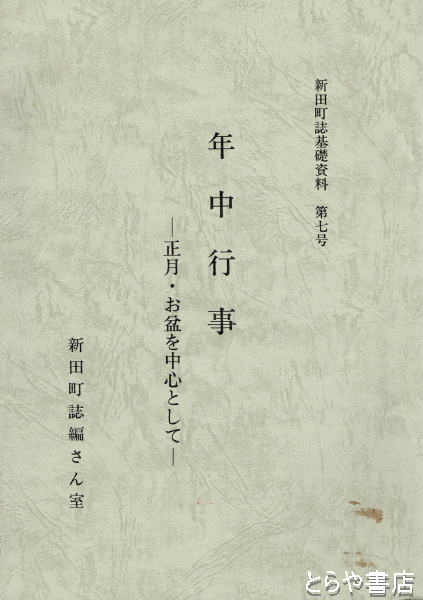 新田町誌基礎資料　第七号
年中行事
―正月・お盆を中心として―
新田町誌編さん室
とらや書店